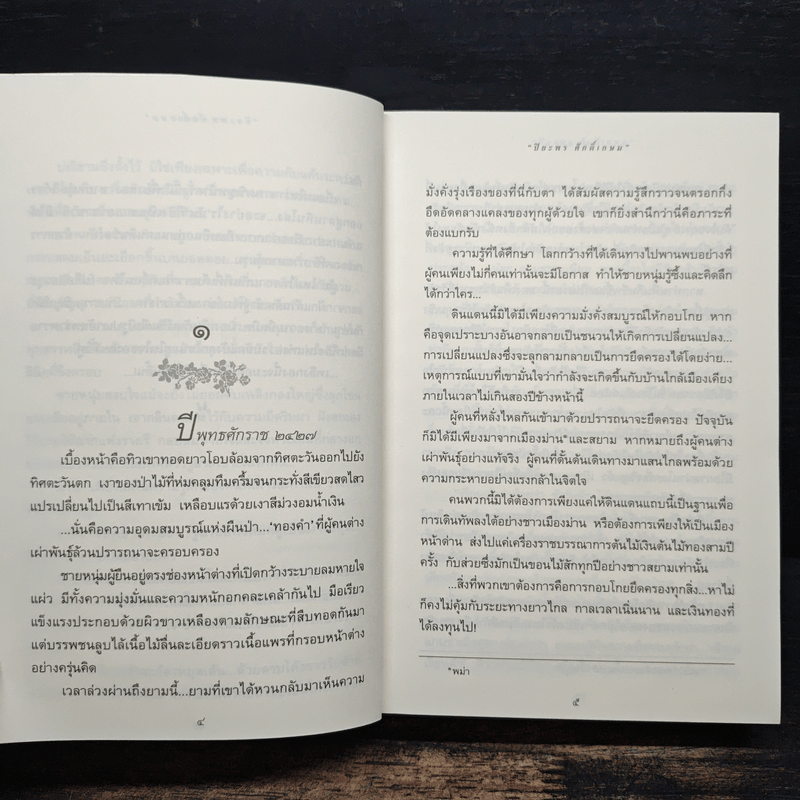 ๑
ปีพุทธศักราช ๒๔๒๗
เบื้องหน้าคือทิวเขาทอดยาวโอบล้อมจากทิศตะวันออกไปยัง
ทิศตะวันตก เงาของป่าไม้ที่ห่มคลุมทึมครึ้มจนกระทั่งสีเขียวสดใส
แปรเปลี่ยนไปเป็นสีเทาเข้ม เหลือบแรด้วยเงาสีม่วงอมน้ำเงิน
...นั่นคือความอุดมสมบูรณ์แห่งผืนป่า...‘ทองคำ’ ที่ผู้คนต่าง
เผ่าพันธุ์ล้วนปรารถนาจะครอบครอง
ชายหนุ่มผู้ยืนอยู่ตรงช่องหน้าต่างที่เปิดกว้างระบายลมหายใจ
แผ่ว มีทั้งความมุ่งมั่นและความหนักอกคละเคล้ากันไป มือเรียว
แข็งแรงประกอบด้วยผิวขาวเหลืองตามลักษณะที่สืบทอดกันมา
แต่บรรพชนลูบไล้เนื้อไม้ลื่นละเอียดราวเนื้อแพรที่กรอบหน้าต่าง
อย่างครุ่นคิด
เวลาล่วงผ่านถึงยามนี้...ยามที่เขาได้หวนกลับมาเห็นความ
๔
“ปิยะพร ศักดิ์เกษม”
มั่งคั่งรุ่งเรืองของที่นี่กับตา ได้สัมผัสความรู้สึกราวจนตรอกกึ่ง
อึดอัดคลางแคลงของทุกผู้ด้วยใจ เขาก็ยิ่งสำนึกว่านี่คือภาระที่
ต้องแบกรับ
ความรู้ที่ได้ศึกษา โลกกว้างที่ได้เดินทางไปพานพบอย่างที่
ผู้คนเพียงไม่กี่คนเท่านั้นจะมีโอกาส ทำให้ชายหนุ่มรู้ซึ้งและคิดลึก
ได้กว่าใคร...
ดินแดนนี้มิได้มีเพียงความมั่งคั่งสมบูรณ์ให้กอบโกย หาก
คือจุดเปราะบางอันอาจกลายเป็นชนวนให้เกิดการเปลี่ยนแปลง...
การเปลี่ยนแปลงซึ่งจะลุกลามกลายเป็นการยึดครองได้โดยง่าย...
เหตุการณ์แบบที่เขามั่นใจว่ากำลังจะเกิดขึ้นกับบ้านใกล้เมืองเคียง
ภายในเวลาไม่เกินสองปีข้างหน้านี้
ผู้คนที่หลั่งไหลกันเข้ามาด้วยปรารถนาจะยึดครอง ปัจจุบัน
ก็มิได้มีเพียงมาจากเมืองม่าน*และสยาม หากหมายถึงผู้คนต่าง
เผ่าพันธุ์อย่างแท้จริง ผู้คนที่ดั้นด้นเดินทางมาแสนไกลพร้อมด้วย
ความกระหายอย่างแรงกล้าในจิตใจ
คนพวกนี้มิได้ต้องการเพียงแค่ให้ดินแดนแถบนี้เป็นฐานเพื่อ
การเดินทัพลงใต้อย่างชาวเมืองม่าน หรือต้องการเพียงให้เป็นเมือง
หน้าด่าน ส่งไปแค่เครื่องราชบรรณาการต้นไม้เงินต้นไม้ทองสามปี
ครั้ง กับส่วยซึ่งมักเป็นขอนไม้สักทุกปีอย่างชาวสยามเท่านั้น
...สิ่งที่พวกเขาต้องการคือการกอบโกยยึดครองทุกสิ่ง...หาไม่
ก็คงไม่คุ้มกับระยะทางยาวไกล กาลเวลาเนิ่นนาน และเงินทองที่
ได้ลงทุนไป!
*พม่า
๕